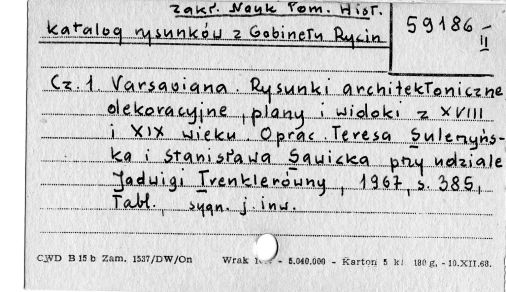 zakr. Nauk Pom. Hist.
katalog rysunków z Gabinetu Rycin
59186
II
Cz. 1 Varsaviana. Rysunki architektoniczne
dekoracyjne, plany i widoki z XVIII
i XIX wieku. Oprac. Teresa Sulerzyńs-
ka i Stanisława Sawicka przy udziale
Jadwigi Trenklerówny, 1967, s. 385,
Tabl., sygn. j. inw.
CWD B 15 b Zam. 1537/DW/On Wrak - 5.040.000 - Karton 5 kl 180 g, - 10.XII.68.